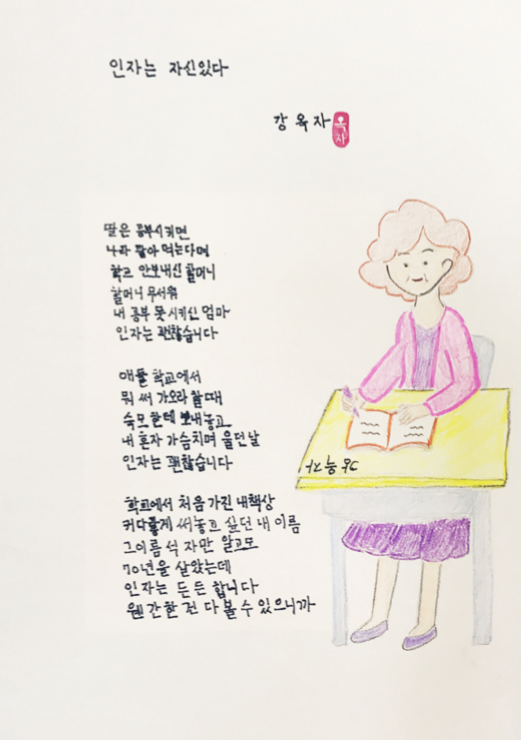 인자는 자신있다
강 옥 자
옥자
딸은 공부시키면
나라 팔아 먹는다며
학교 안보내신 할머니
할머니 무서워
내 공부 못 시키신 엄마
인자는 괜찮습니다
애들 학교에서
뭐 써 가오라 할때
숙모 한테 보내놓고
내 혼자 가슴치며 울던날
인자는 괜찮습니다
학교에서 처음 가진 내책상
커다랗게 써놓고 싶던 내 이름
그이름 석 자만 알고도
70년을 살았는데
인자는 든든 합니다
웬 간한 건 다 볼 수 있으니까